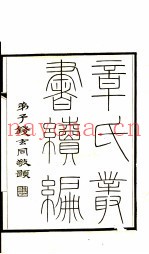 章氏叢
書續編
弟子錢玄同敬題
nayona.cn